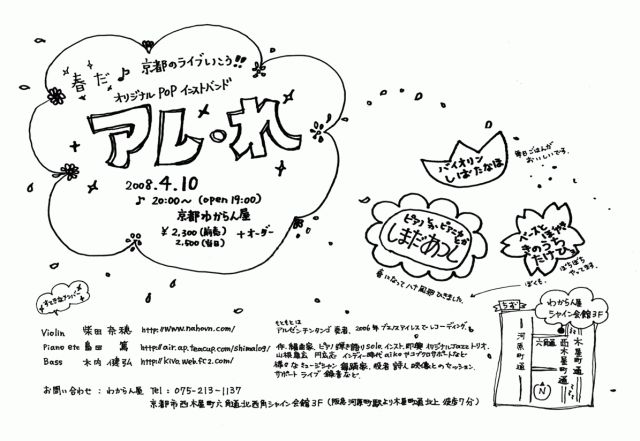 春だ♪ 京都のライブいこう!!
オリジナル POP インストバンド
アレ・れ
2008.4.10
♪ 20:00〜 (open 19:00)
京都わからん屋
¥2,300 (前売) +オーダー
2,500 (当日)
バイオリン
しばたなほ
毎日ごはんが
おいしいです。
ピアノとか、ピアニカとか
しまだあつし
春になってハナ風邪ひきました。
ベースと
きのうち
たけひ
ぼちぼち
やってます。
ぼくも。
すてきなメンバー
Violin 柴田奈穂 http://www.nahovn.com/
もともとは
アルゼンチンタンゴ奏者、2006年ブエノスアイレスでレコーディング。
Piano etc 島田篤 http://air.ap.teacup.com/shimalog/
作・編曲家、ピアノ弾き語りsolo、インスト即興オリジナルプロジェクトトリオ、
Bass 木内健弘 http://kivo.web.fc2.com/
サポートライブ 録音など。
お問い合わせ: わからん屋 Tel : 075-213-1137
京都市西木屋町六角通北西角シャイン会館3F (阪急河原町駅より木屋町通北上 徒歩7分)
わからん屋
シャイン会館3F
河原町通
六角通
西木屋町通
木屋町通
N